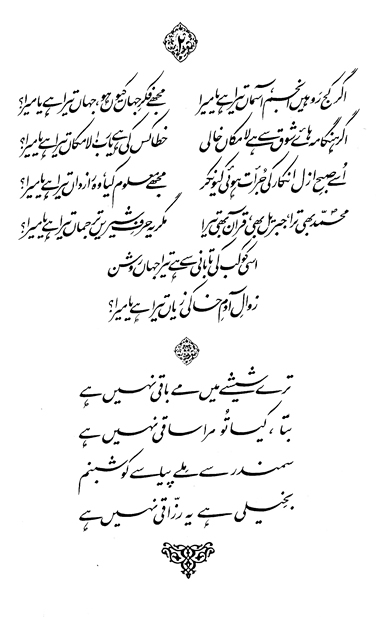 ۲
اگر کج رَو ہیں انجم، آسماں تیرا ہے یا میرا مجھے فکرِ جہاں کیوں ہو، جہاں تیرا ہے یا میرا؟
اگر ہنگامہ ہائے شوق سے ہے لامکاں خالی خطا کس کی ہے یا رب! لامکاں تیرا ہے یا میرا؟
اُسے صبحِ ازل انکار کی جُرأت ہوئی کیونکر مجھے معلوم کیا، وہ رازداں تیرا ہے یا میرا؟
محمدؐ بھی ترا، جبریل بھی، قرآن بھی تیرا مگر یہ حرفِ شیریں ترجماں تیرا ہے یا میرا؟
اسی کوکب کی تابانی سے ہے تیرا جہاں روشن
زوالِ آدمِ خاکی زیاں تیرا ہے یا میرا؟
ترے شیشے میں مے باقی نہیں ہے
بتا، کیا تُو مرا ساقی نہیں ہے
سمندر سے ملے پیاسے کو شبنم
بخیلی ہے یہ رزّاقی نہیں ہے